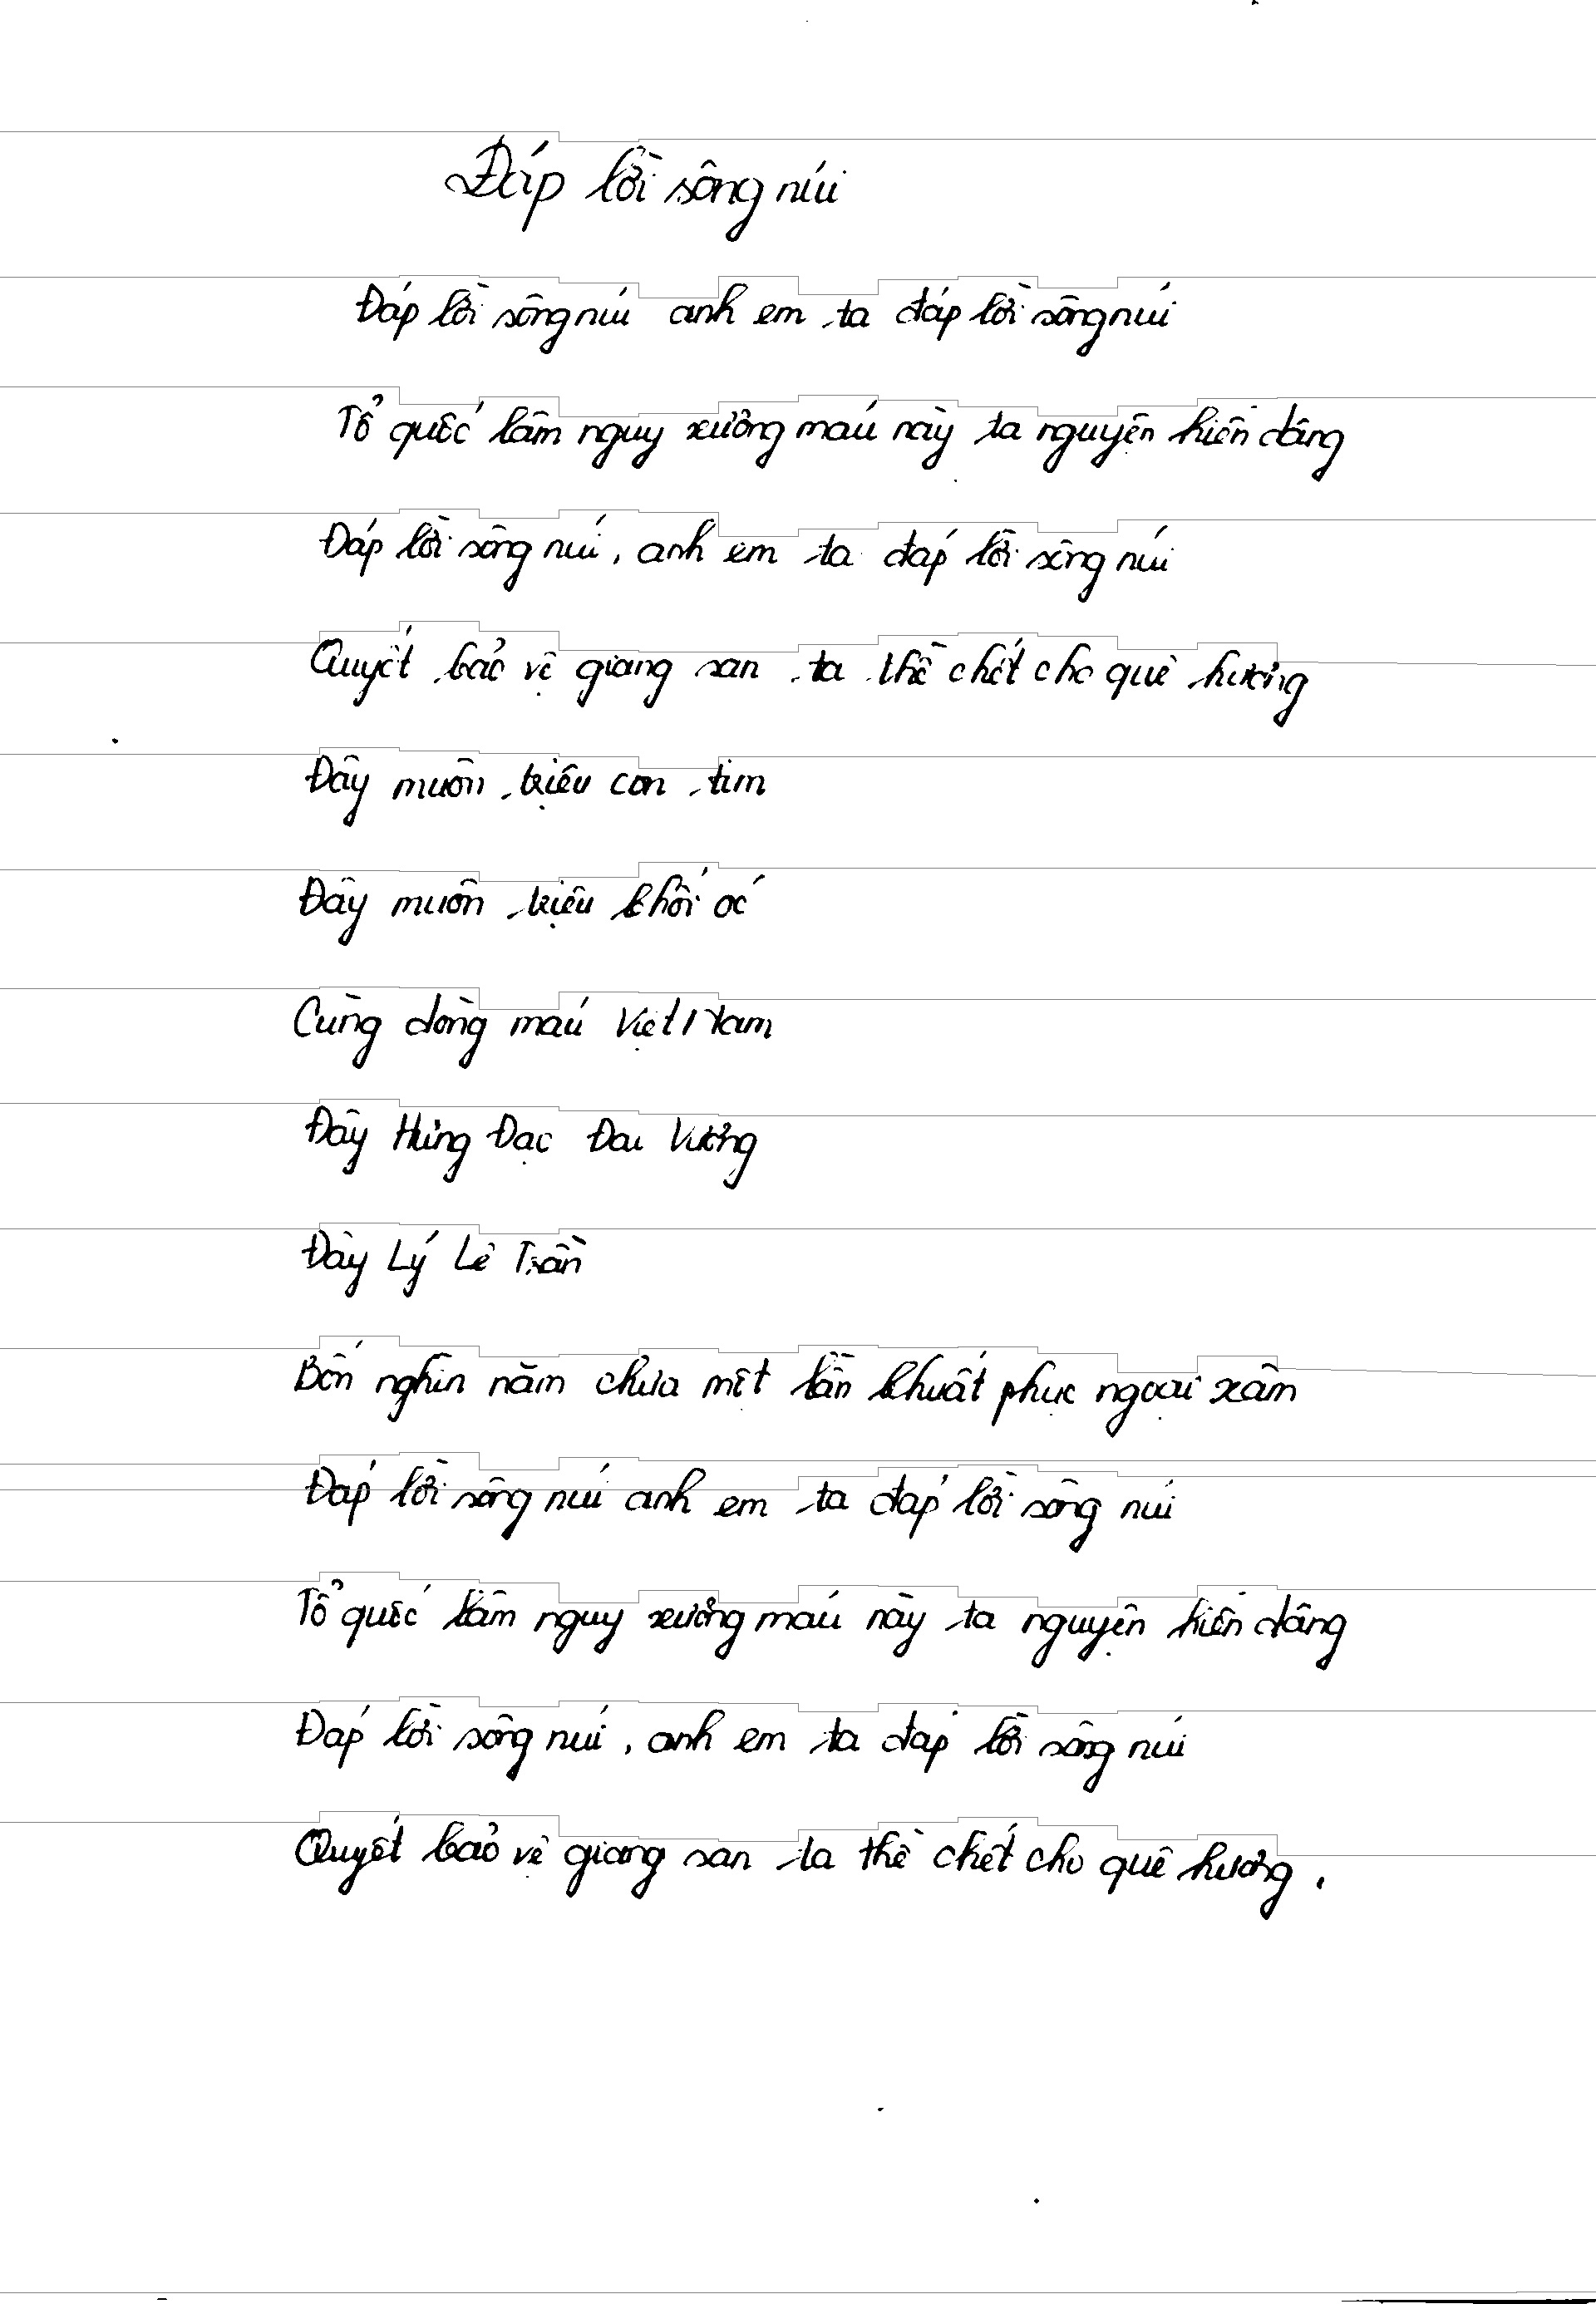 Đáp lời sông núi
Đáp lời sông núi anh em ta đáp lời sông núi
Tổ quốc lâm nguy xương máu này ta nguyện hiến dâng
Đáp lời sông núi, anh em ta đáp lời sông núi
Quyết bảo vệ giang san ta thề chết cho quê hương
Đây muôn triệu con tim
Đây muôn triệu khối óc
Cùng dòng máu Việt Nam
Đây Hưng Đạo Đại Vương
Đây Lý Lê Trần
Bốn nghìn năm chưa một lần khuất phục ngoại xâm
Đáp lời sông núi anh em ta đáp lời sông núi
Tổ quốc lâm nguy xương máu này ta nguyện hiến dâng
Đáp lời sông núi, anh em ta đáp lời sông núi
Quyết bảo vệ giang san ta thề chết cho quê hương.